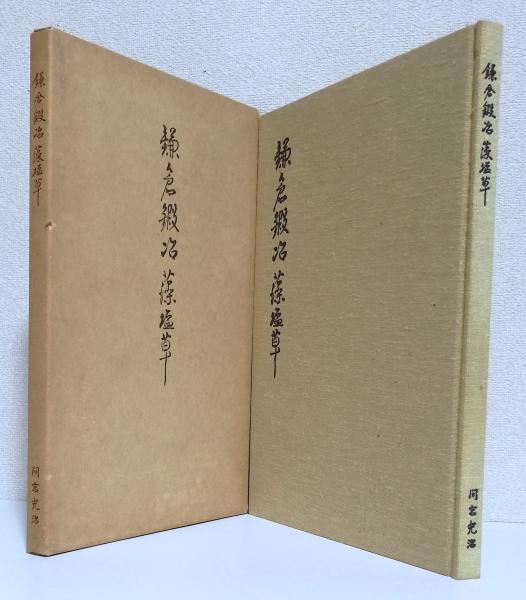 鎌倉鍛冶藻塩草
間宮光治
鎌倉鍛冶藻塩草
鎌倉鍛冶藻塩草
鎌倉鍛冶藻塩草
間宮光治